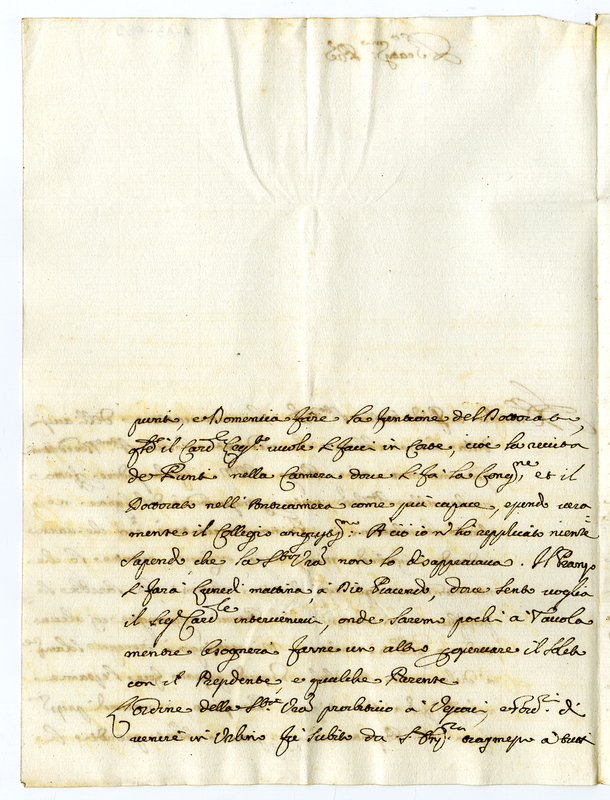 punti, e Domenica fare la funtione del Dottorato,
il Card. Leg. vuole si facci in Corte, cioè la recita
de Punti nella Camera dove si fà la Cong.ne, et il
Dottorato nell' Anticamera come più capace, essendo vera
mente il Collegio angustis.mo. A ciò io n' hò replicato niente
sapendo che la S. V.ra non lo disapprovava. Il Pranzo
si farà Lunedì mattina, à Dio piacendo, dove sento voglia
il Sig. Card.le intervenirvi, onde saremo pochi à Tavola
mentre bisognerà farne un altro per
con il Presidente, e qualche Parente
L'ordine della S. V.ra proibitivo a Vescovi, e di
venire in Urbino fù subito da trasmesso à tutti